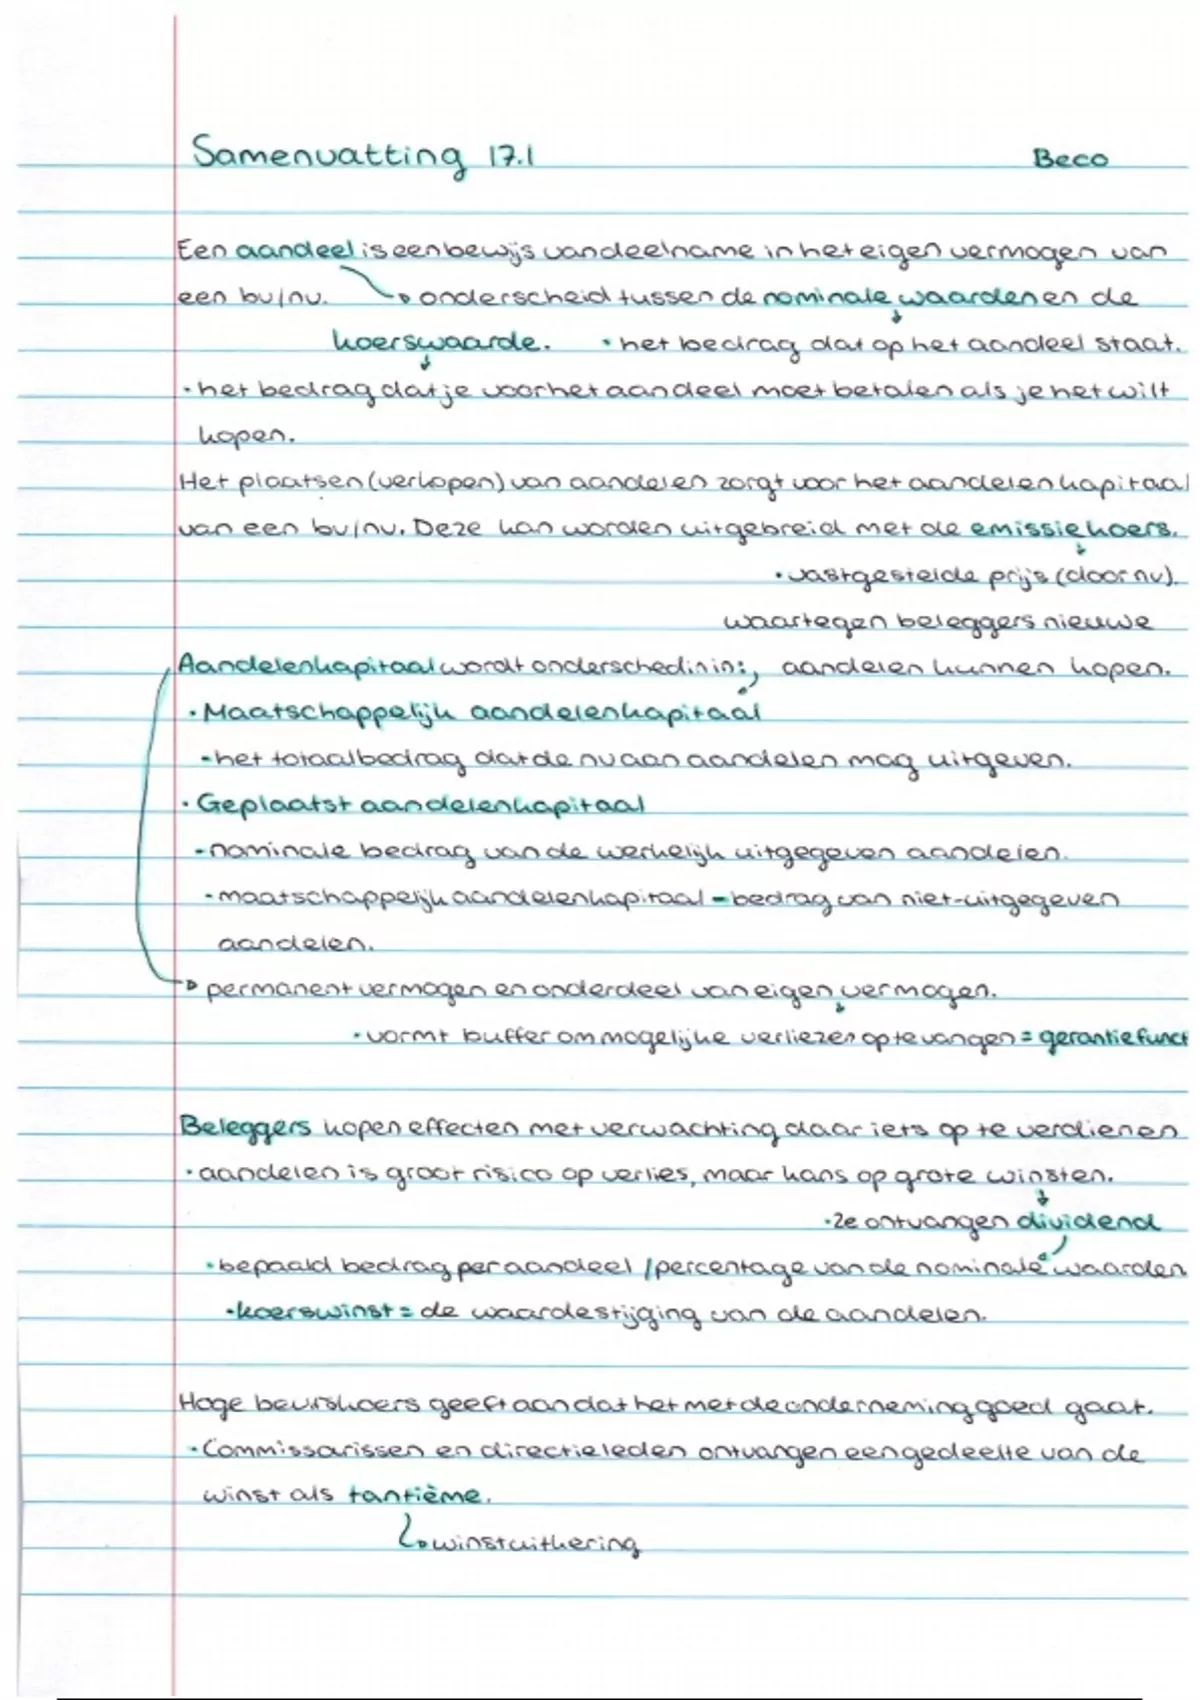 Samenvatting 17.1 Beco
Een aandeel is een bewijs van deelname in het eigen vermogen van
een bv/nv. onderscheid tussen de nominale waarden en de
koerswaarde. • het bedrag dat op het aandeel staat.
• het bedrag dat je voor het aandeel moet betalen als je het wilt
kopen.
Het plaatsen (verkopen) van aandelen zorgt voor het aandelenkapitaal
van een bv/nv. Deze kan worden uitgebreid met de emissiekoers.
• vastgestelde prijs (door nv).
waartegen beleggers nieuwe
Aandelenkapitaal wordt onderschedin in:, aandelen kunnen kopen.
• Maatschappelijk aandelenkapitaal
- het totaalbedrag dat de nv aan aandelen mag uitgeven.
• Geplaatst aandelenkapitaal
- nominale bedrag van de werkelijk uitgegeven aandelen.
- maatschappelijk aandelenkapitaal - bedrag van niet-uitgegeven
aandelen.
permanent vermogen en onderdeel van eigen vermogen.
• vormt buffer om mogelijke verliezen op te vangen = garantiefunct
Beleggers kopen effecten met verwachting daar iets op te verdienen
• aandelen is groot risico op verlies, maar kans op grote winsten.
• Ze ontvangen dividend
• bepaald bedrag per aandeel / percentage van de nominale waarden
• koerswinst = de waardestijging van de aandelen.
Hoge beurskoers geeft aan dat het met de onderneming goed gaat.
• Commissarissen en directieleden ontvangen een gedeelte van de
winst als tantième.
winstuitkering